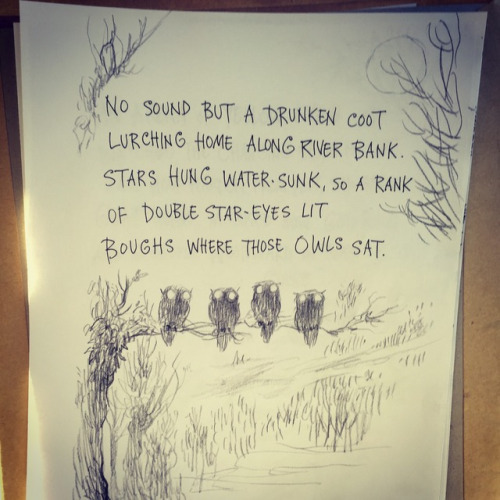 NO SOUND BUT A DRUNKEN COOT
LURCHING HOME ALONG RIVER BANK.
STARS HUNG WATER-SUNK, SO A RANK
OF DOUBLE STAR-EYES LIT
BOUGHS WHERE THOSE OWLS SAT.